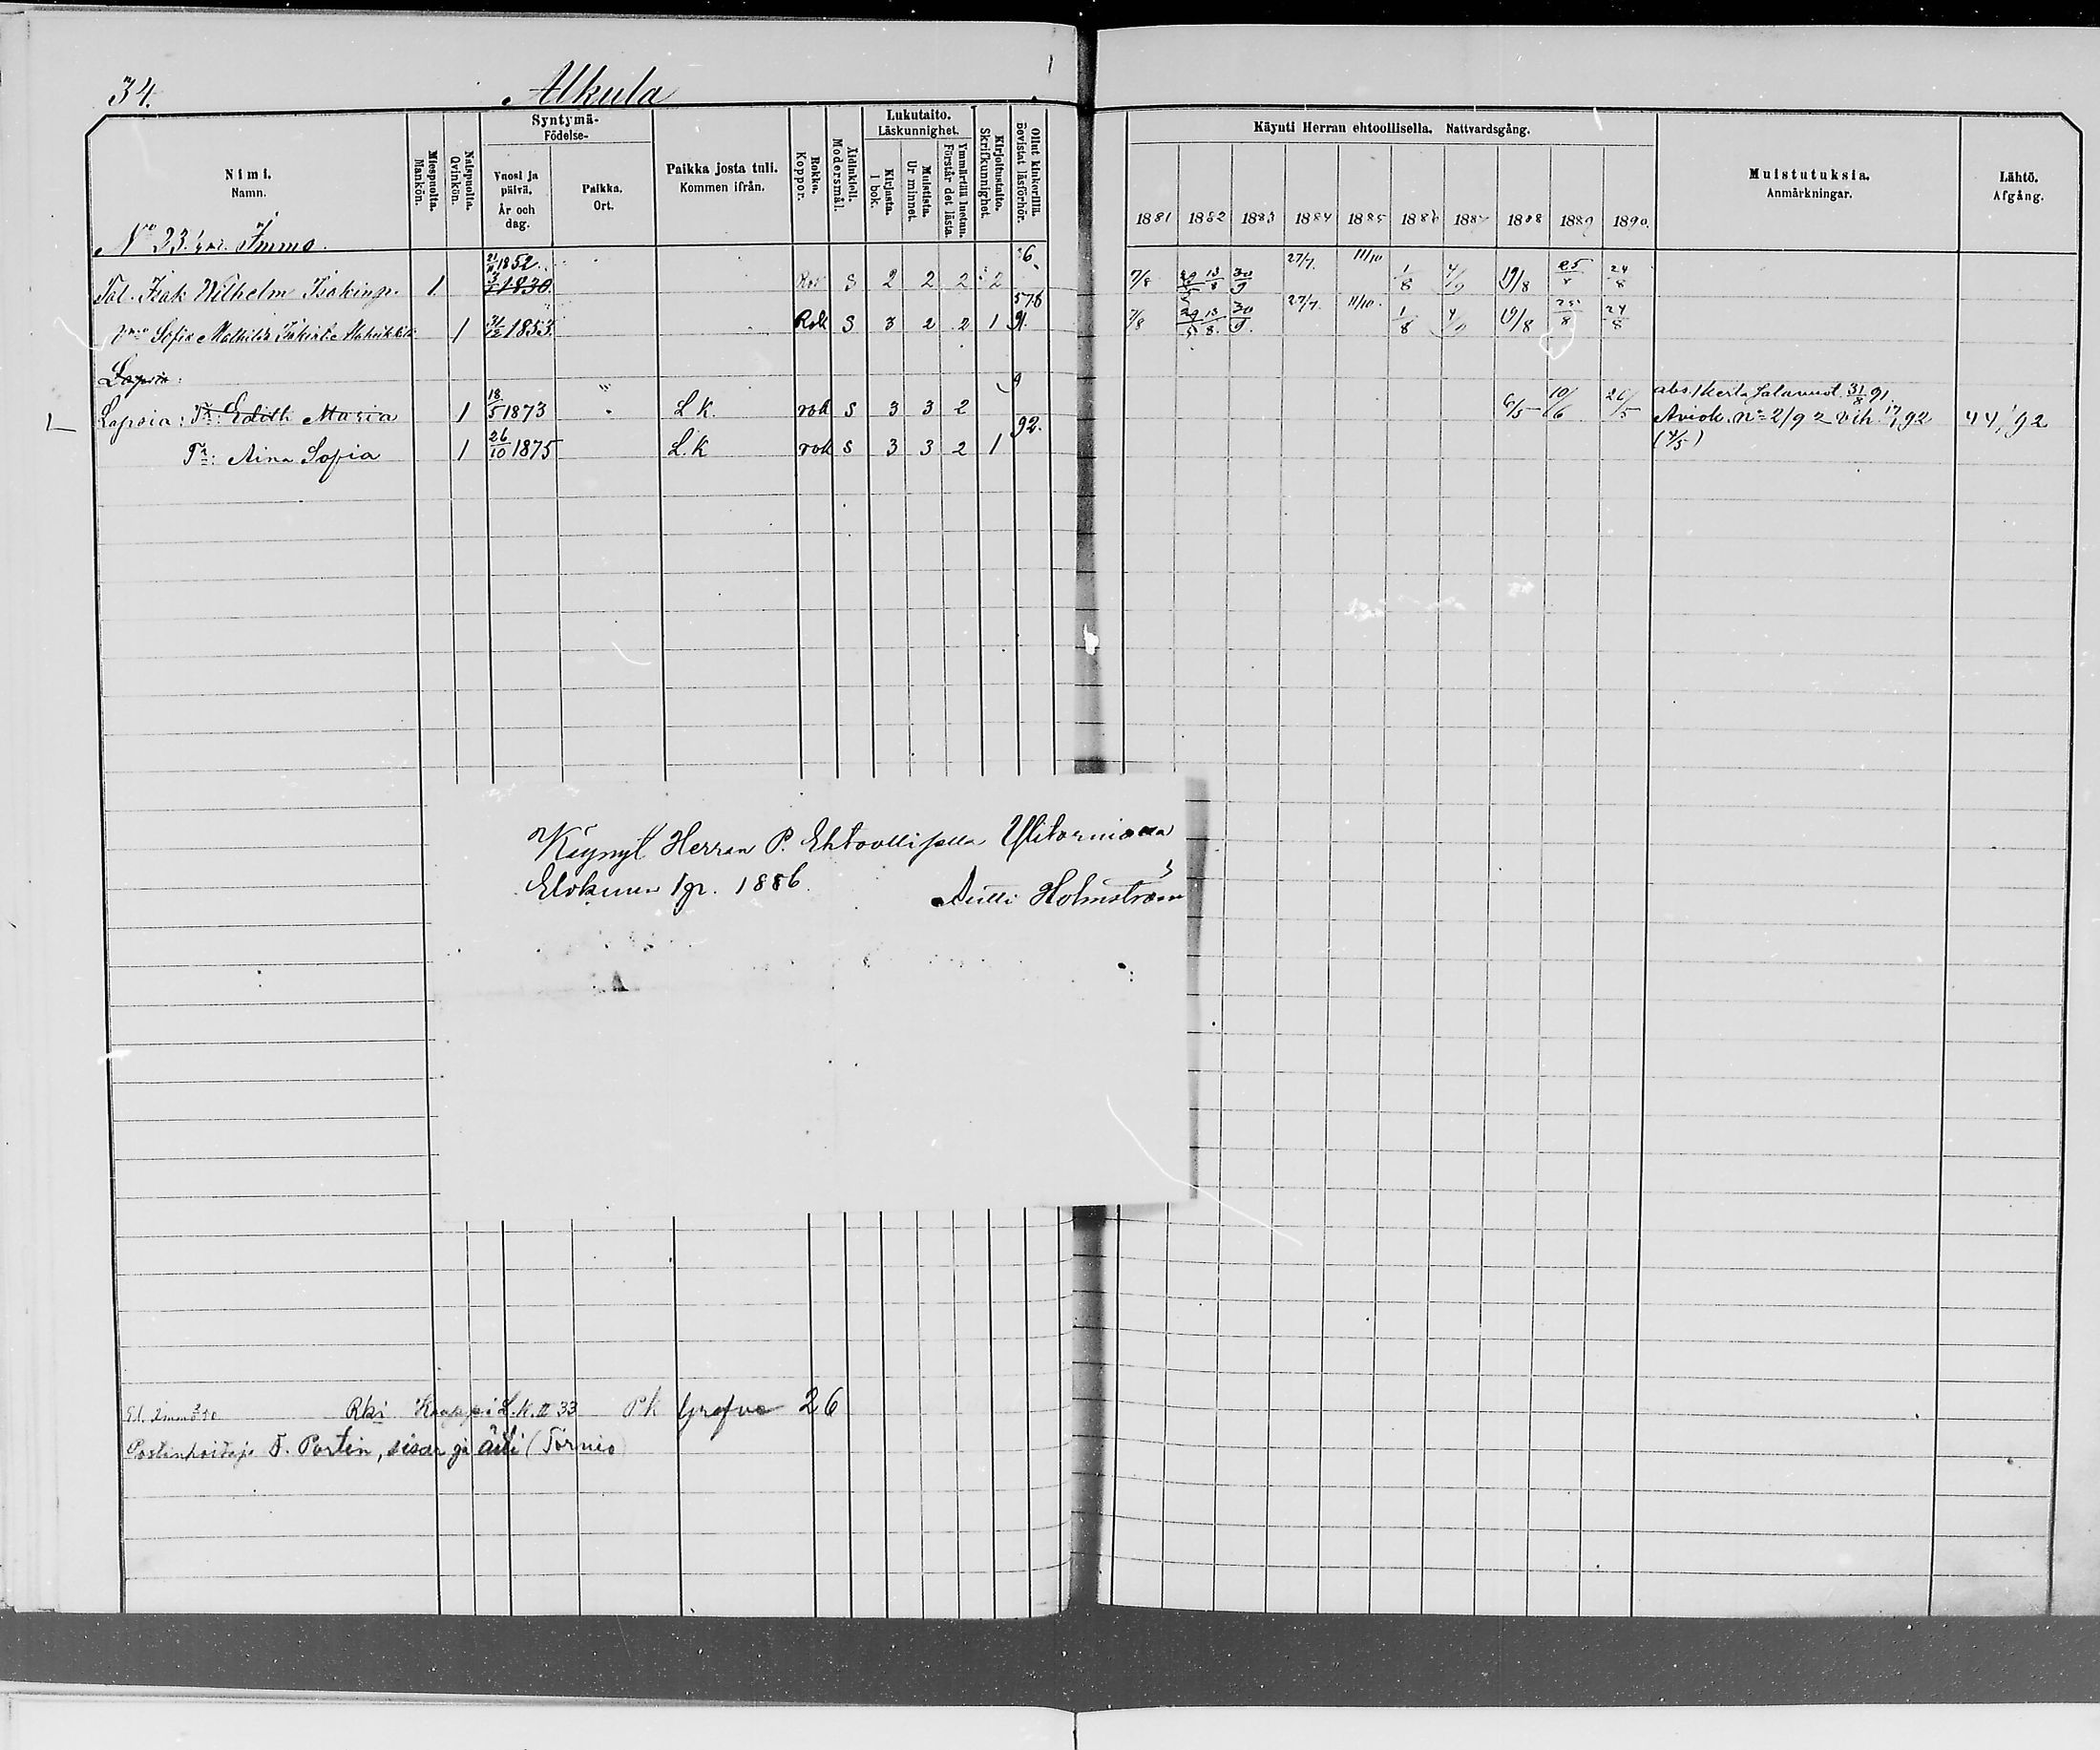 34. Alkula
Syntymä- Födelse-
Lukutaito. Läskunnighet.
Nimi. Namn.
Miespuolia. Mankön.
Naispuolia. Qvinkön.
Vuosi ja päivä. År och dag.
Paikka. Ort.
Paikka josta tuli. Kommen ifrån.
Rokko. Koppor.
Äidinkieli. Modersmål.
Kirjasta. I bok.
Muistista. Ur minnet.
Ymmärtää luetun. Förstår det lästa.
Kirjoitustaito. Skrifkunnighet.
Ollut kinkerillä. Bevistat läsförhör.
Käynti Herran ehtoollisella. Nattvardsgång.
1881 1882 1883 1884 1885 1886 1887 1888 1889 1890
Muistutuksia. Anmärkningar.
Lähtö. Afgång.
No 23. Immo.
21/11 1852
Tal. Isak Wilhelm Isakinp. 1 1830 Rok S 2 2 2 2 7/8 13/8 30/9 27/7 11/10 1/8 4/9 19/8 25/8 24/8
Sofia Mathilda 1 1853 Rok S 3 2 2 1 91. 7/8 29/5 13/8 30/9 27/7 11/10 1/8 4/9 19/8 25/8 24/8
Lapsia:
Lapsia: Tr: Edith Maria 1 18/5 1873 L.K. rok S 3 3 2 10/6 26/5 31/8 91.
Aviok. No 2/92 vih. 92 44/92
Tr: Aina Sofia 1 26/10 1875 L.K rok S 3 3 2 1 92. (4/5)
Käynyt Herran P. Ehtoollisella Ylitorniolla
Elokuun 1 p. 1886.
Holmström
Rki Kauppi L.K. II 33 Pk Grefve 26
Postinhoitaja F. Portin, sisar ja äiti (Tornio)